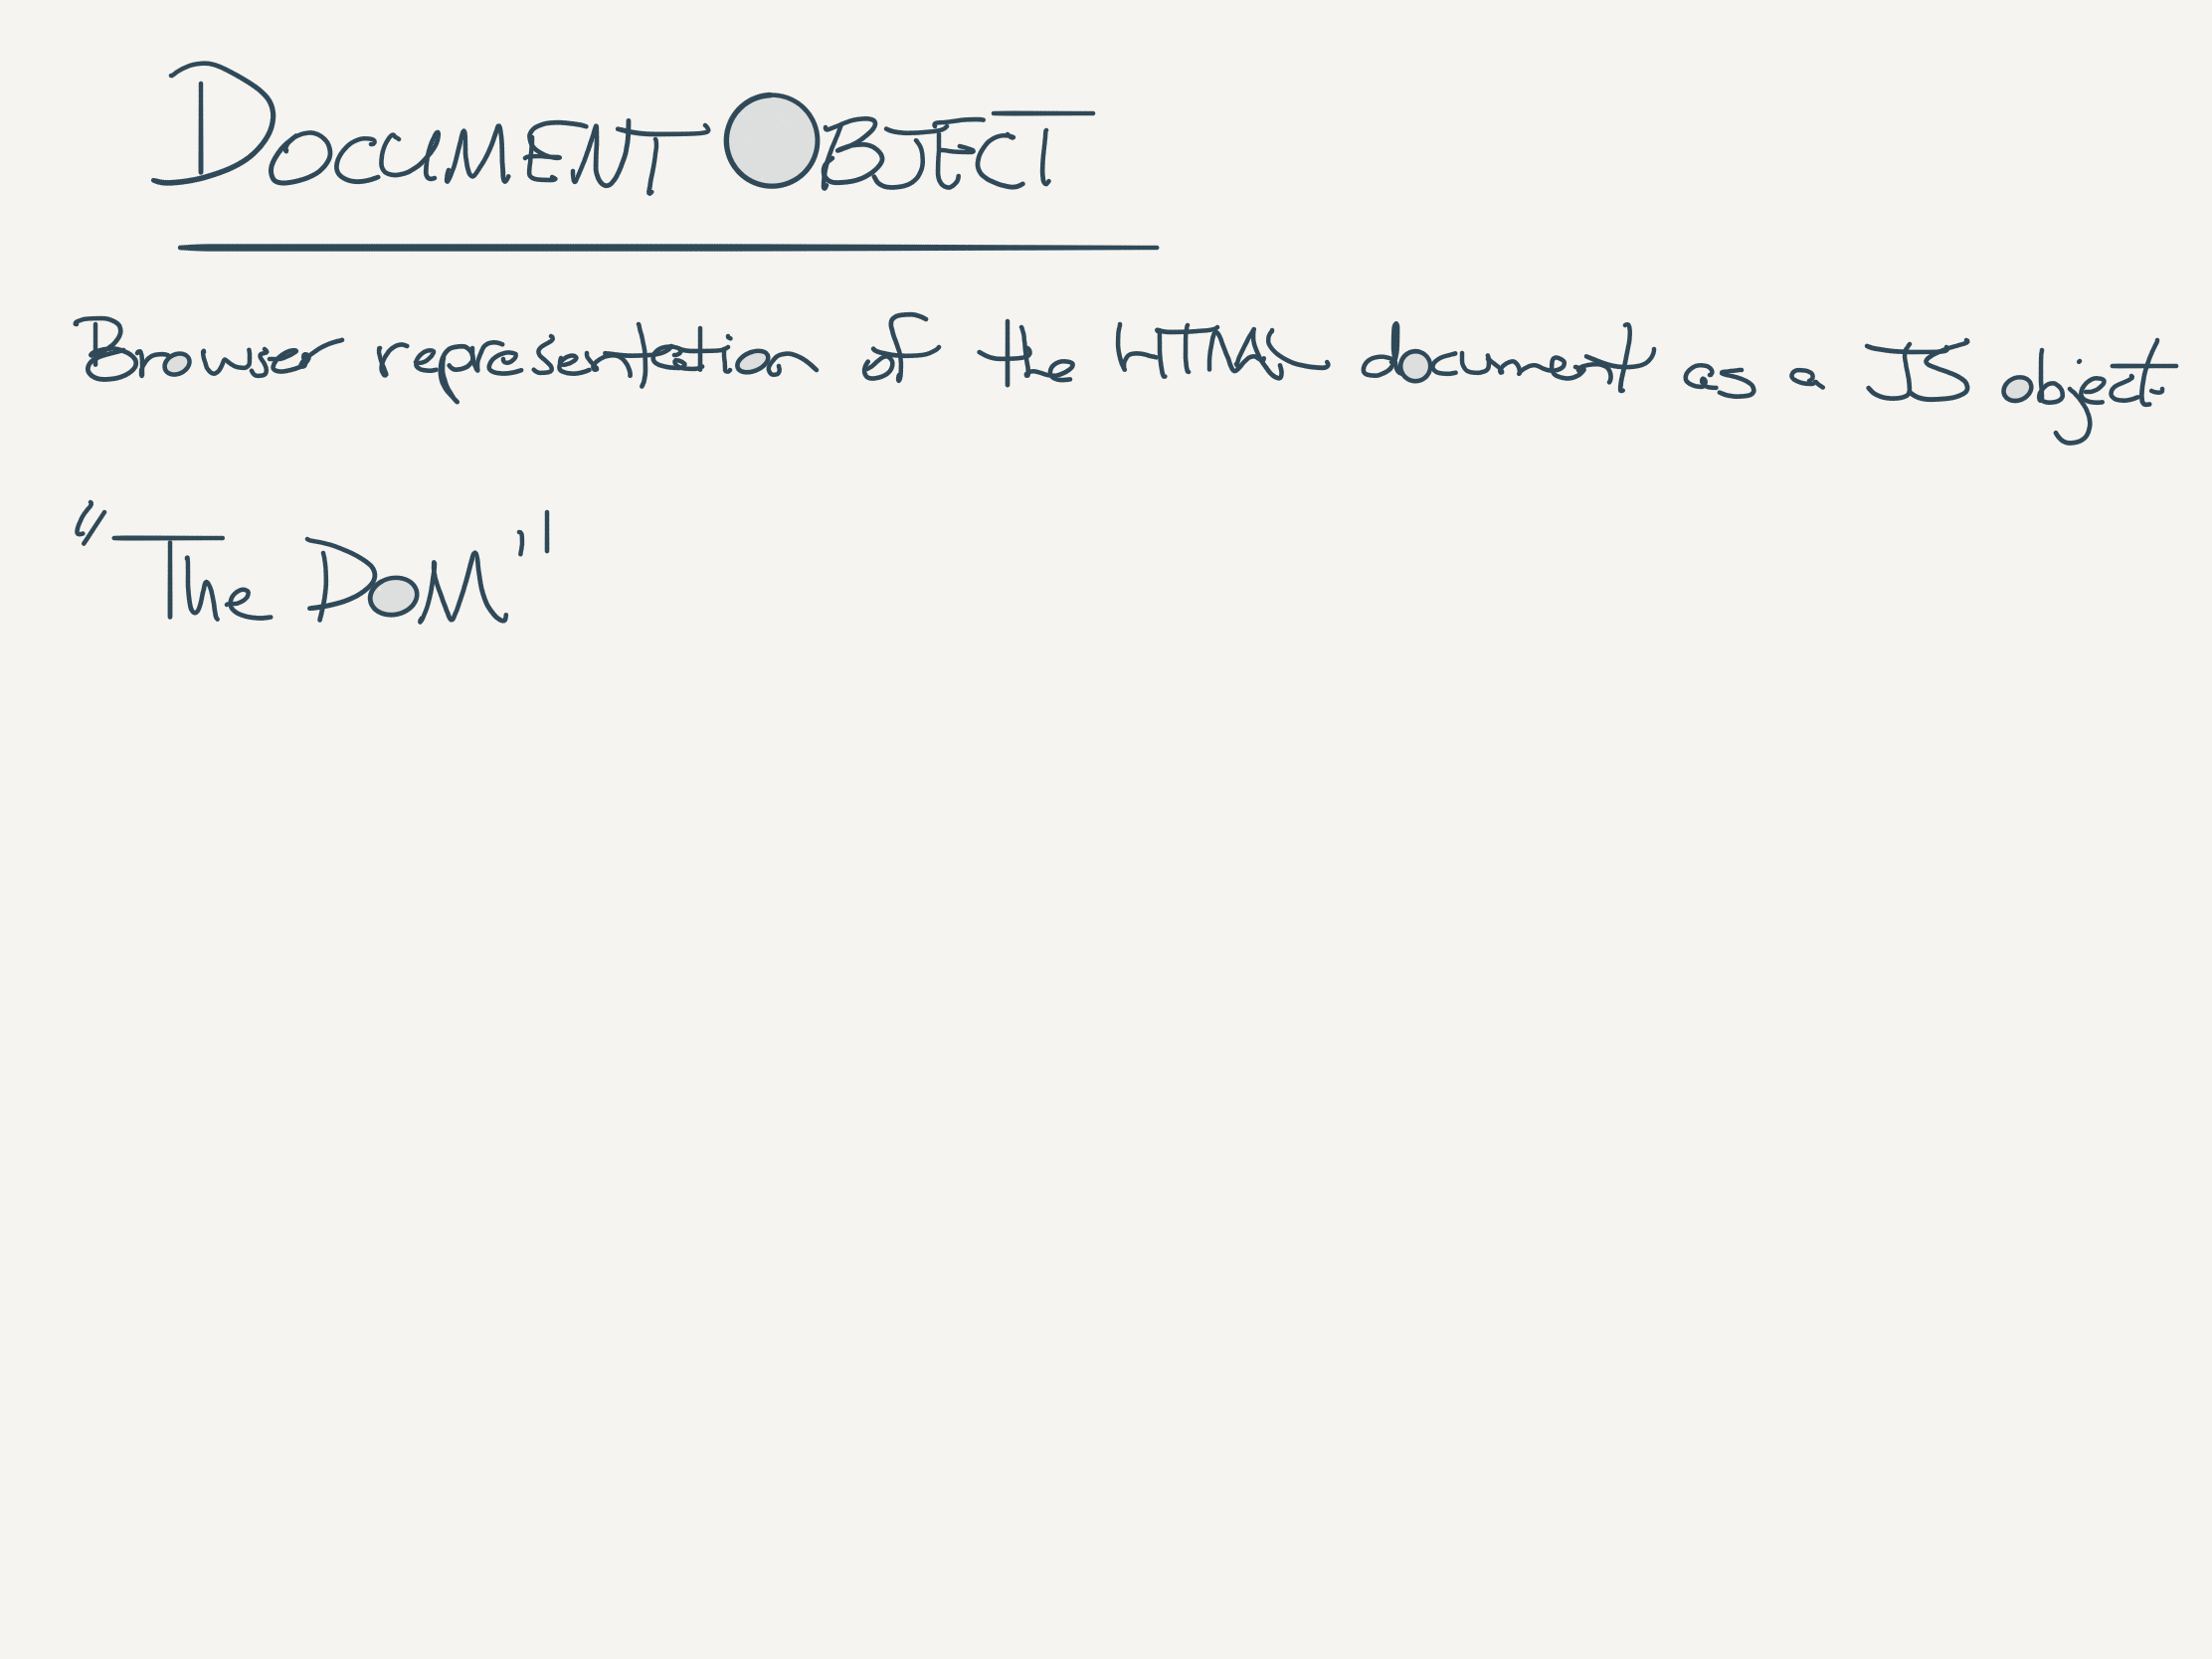 DOCUMENT OBJECT
Browser representation of the HTML document as a JS object
"The DOM"